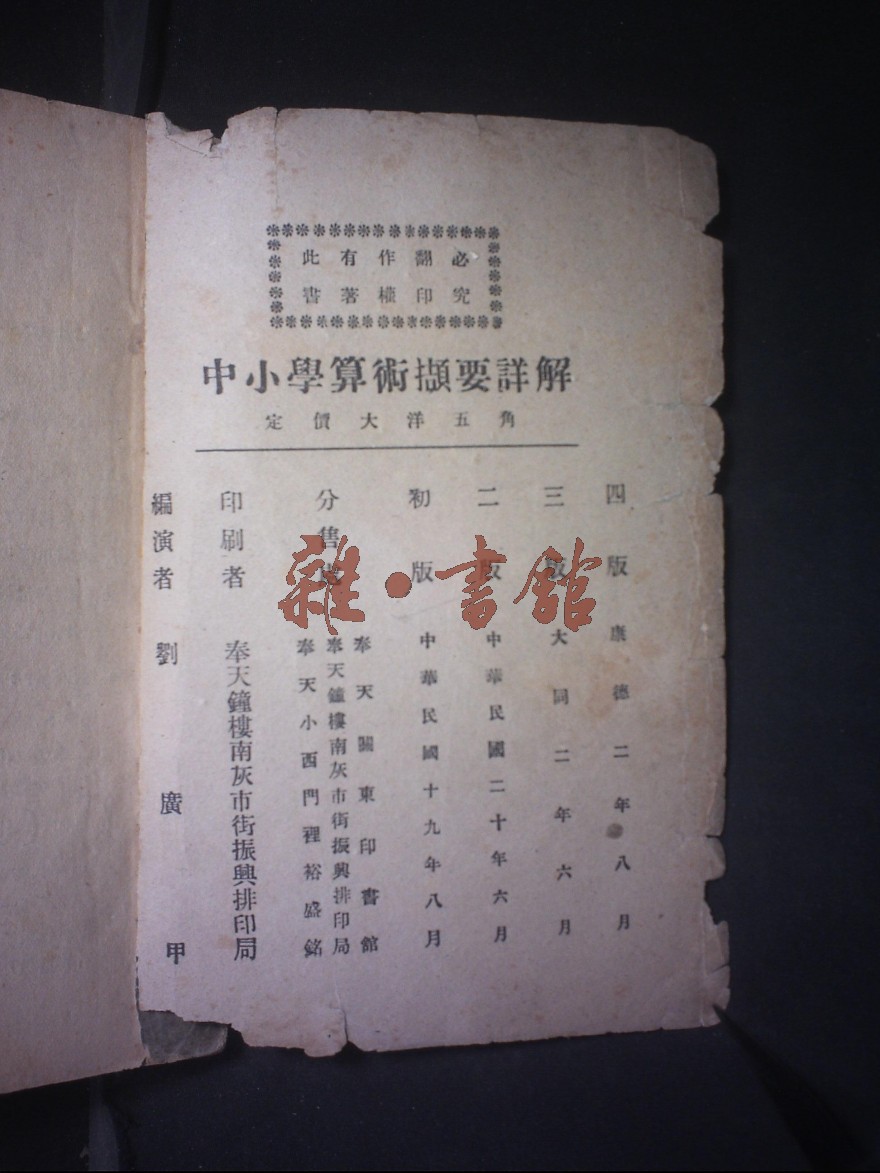 此書
有著
作權
翻印
必究
中小學算術擷要詳解
定價大洋五角
四版 康德二年八月
三版 大同二年六月
二版 中華民國二十年六月
初版 中華民國十九年八月
分售處 奉天關東印書館
奉天鐘樓南灰市街振興排印局
奉天小西門裡裕盛銘
印刷者 奉天鐘樓南灰市街振興排印局
編演者 劉廣甲
雜·書館